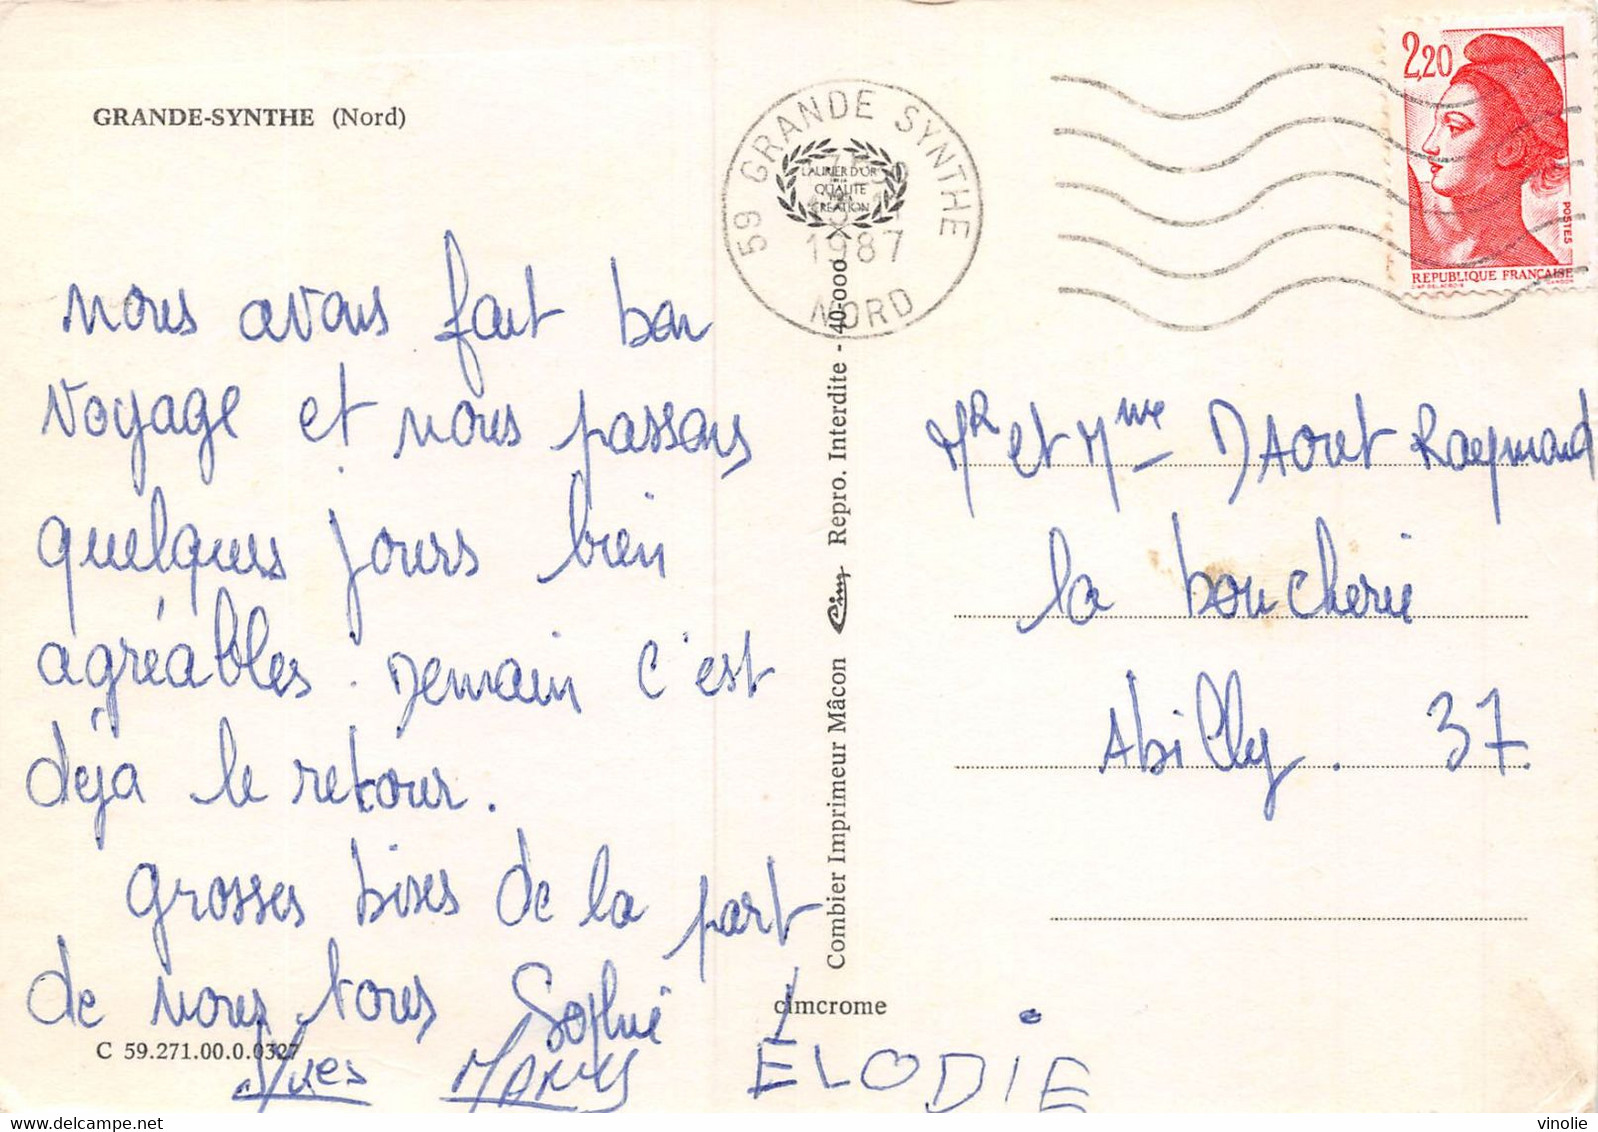 GRANDE-SYNTHE (Nord)
nous avons fait bon
voyage et nous passons
quelques jours bien
agréables. Demain c'est
déjà le retour.
grosses bises de la part
de nous tous Sophie
Yves
ELODIE
C 59.271.00.0.0327
Combier Imprimeur Mâcon Cim Repro. Interdite - 40-000
cimcrome
LAURIER D'OR
QUALITE
CREATION
59 GRANDE SYNTHE
1987
NORD
2,20
POSTES
REPUBLIQUE FRANÇAISE
Mr et Mme DAout Raymond
la boucherie
Abilly. 37.
vinolie